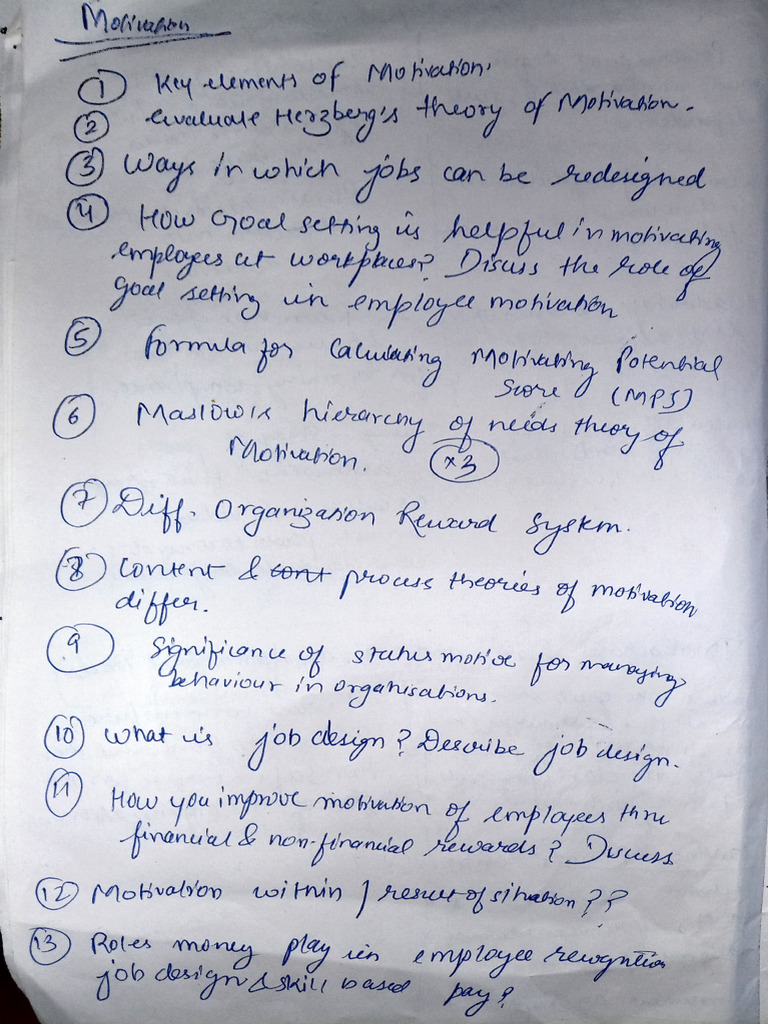 Motivation
① Key elements of Motivation.
② evaluate Herzberg's theory of Motivation.
③ Ways in which jobs can be redesigned
④ How Goal setting is helpful in motivating
employees at workplaces? Discuss the role of
goal setting in employee motivation
⑤ formula for Calculating Motivating Potential
Score (MPS)
⑥ Maslow's hierarchy of needs theory of
Motivation. ×3
⑦ Diff. Organization Reward System.
⑧ Content & cont process theories of motivation
differ.
⑨ Significance of status motive for managing
behaviour in organisations.
⑩ What is job design? Describe job design.
⑪ How you improve motivation of employees thru
financial & non-financial rewards? Discuss
⑫ Motivation within / result of situation??
⑬ Roles money play in employee recogntion
job design & skill based pay?